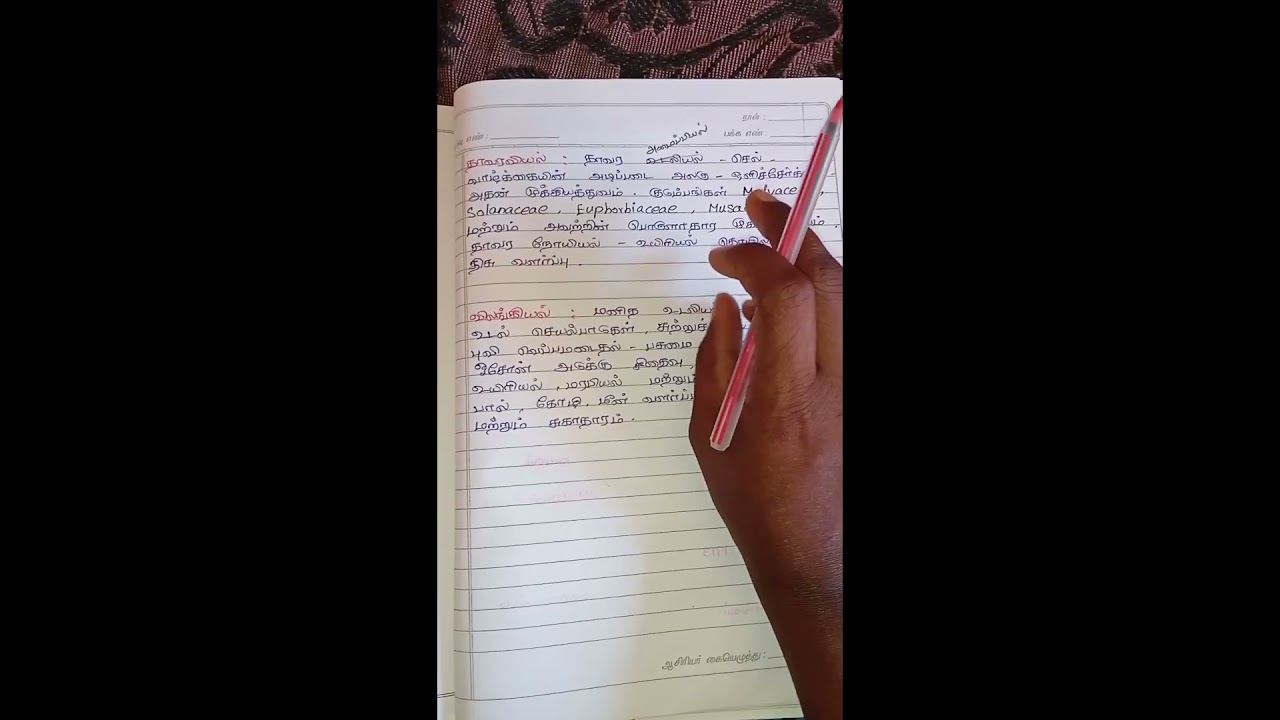 நாள் :
எண் :
பக்க எண் :
அமைப்பியல்
தாவரவியல் : தாவர உடலியல் - செல் -
வாழ்க்கையின் அடிப்படை அலகு - ஒளிச்சேர்க்
அதன் முக்கியத்துவம். குடும்பங்கள் Malvace
Solanaceae, Euphorbiaceae, Musa
மற்றும் அவற்றின் பொருளாதார முக்
தாவர நோயியல் - உயிரியல்
திசு வளர்ப்பு.
விலங்கியல் : மனித உடலிய
உடல் செயல்பாடுகள், சுற்றுச்
புவி வெப்பமடைதல் - பசுமை
ஓசோன் அடுக்கு சிதைவு,
உயிரியல், மரபியல் மற்றும்
பால், கோழி, மீன் வளர்ப்
மற்றும் சுகாதாரம்.
ஆசிரியர் கையெழுத்து :